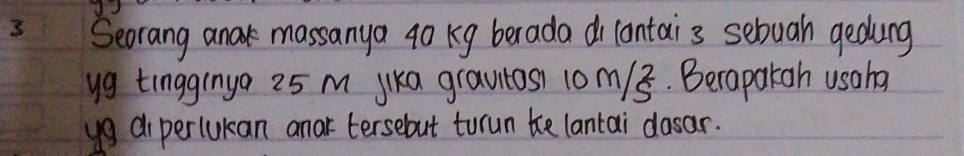 3 Seorang anak massanya 40 kg berada di lantai 3 sebuah gedung
yg tingginya 25 M jika gravitasi 10 m/s². Berapakah usaha
yg diperlukan anak tersebut turun ke lantai dasar.